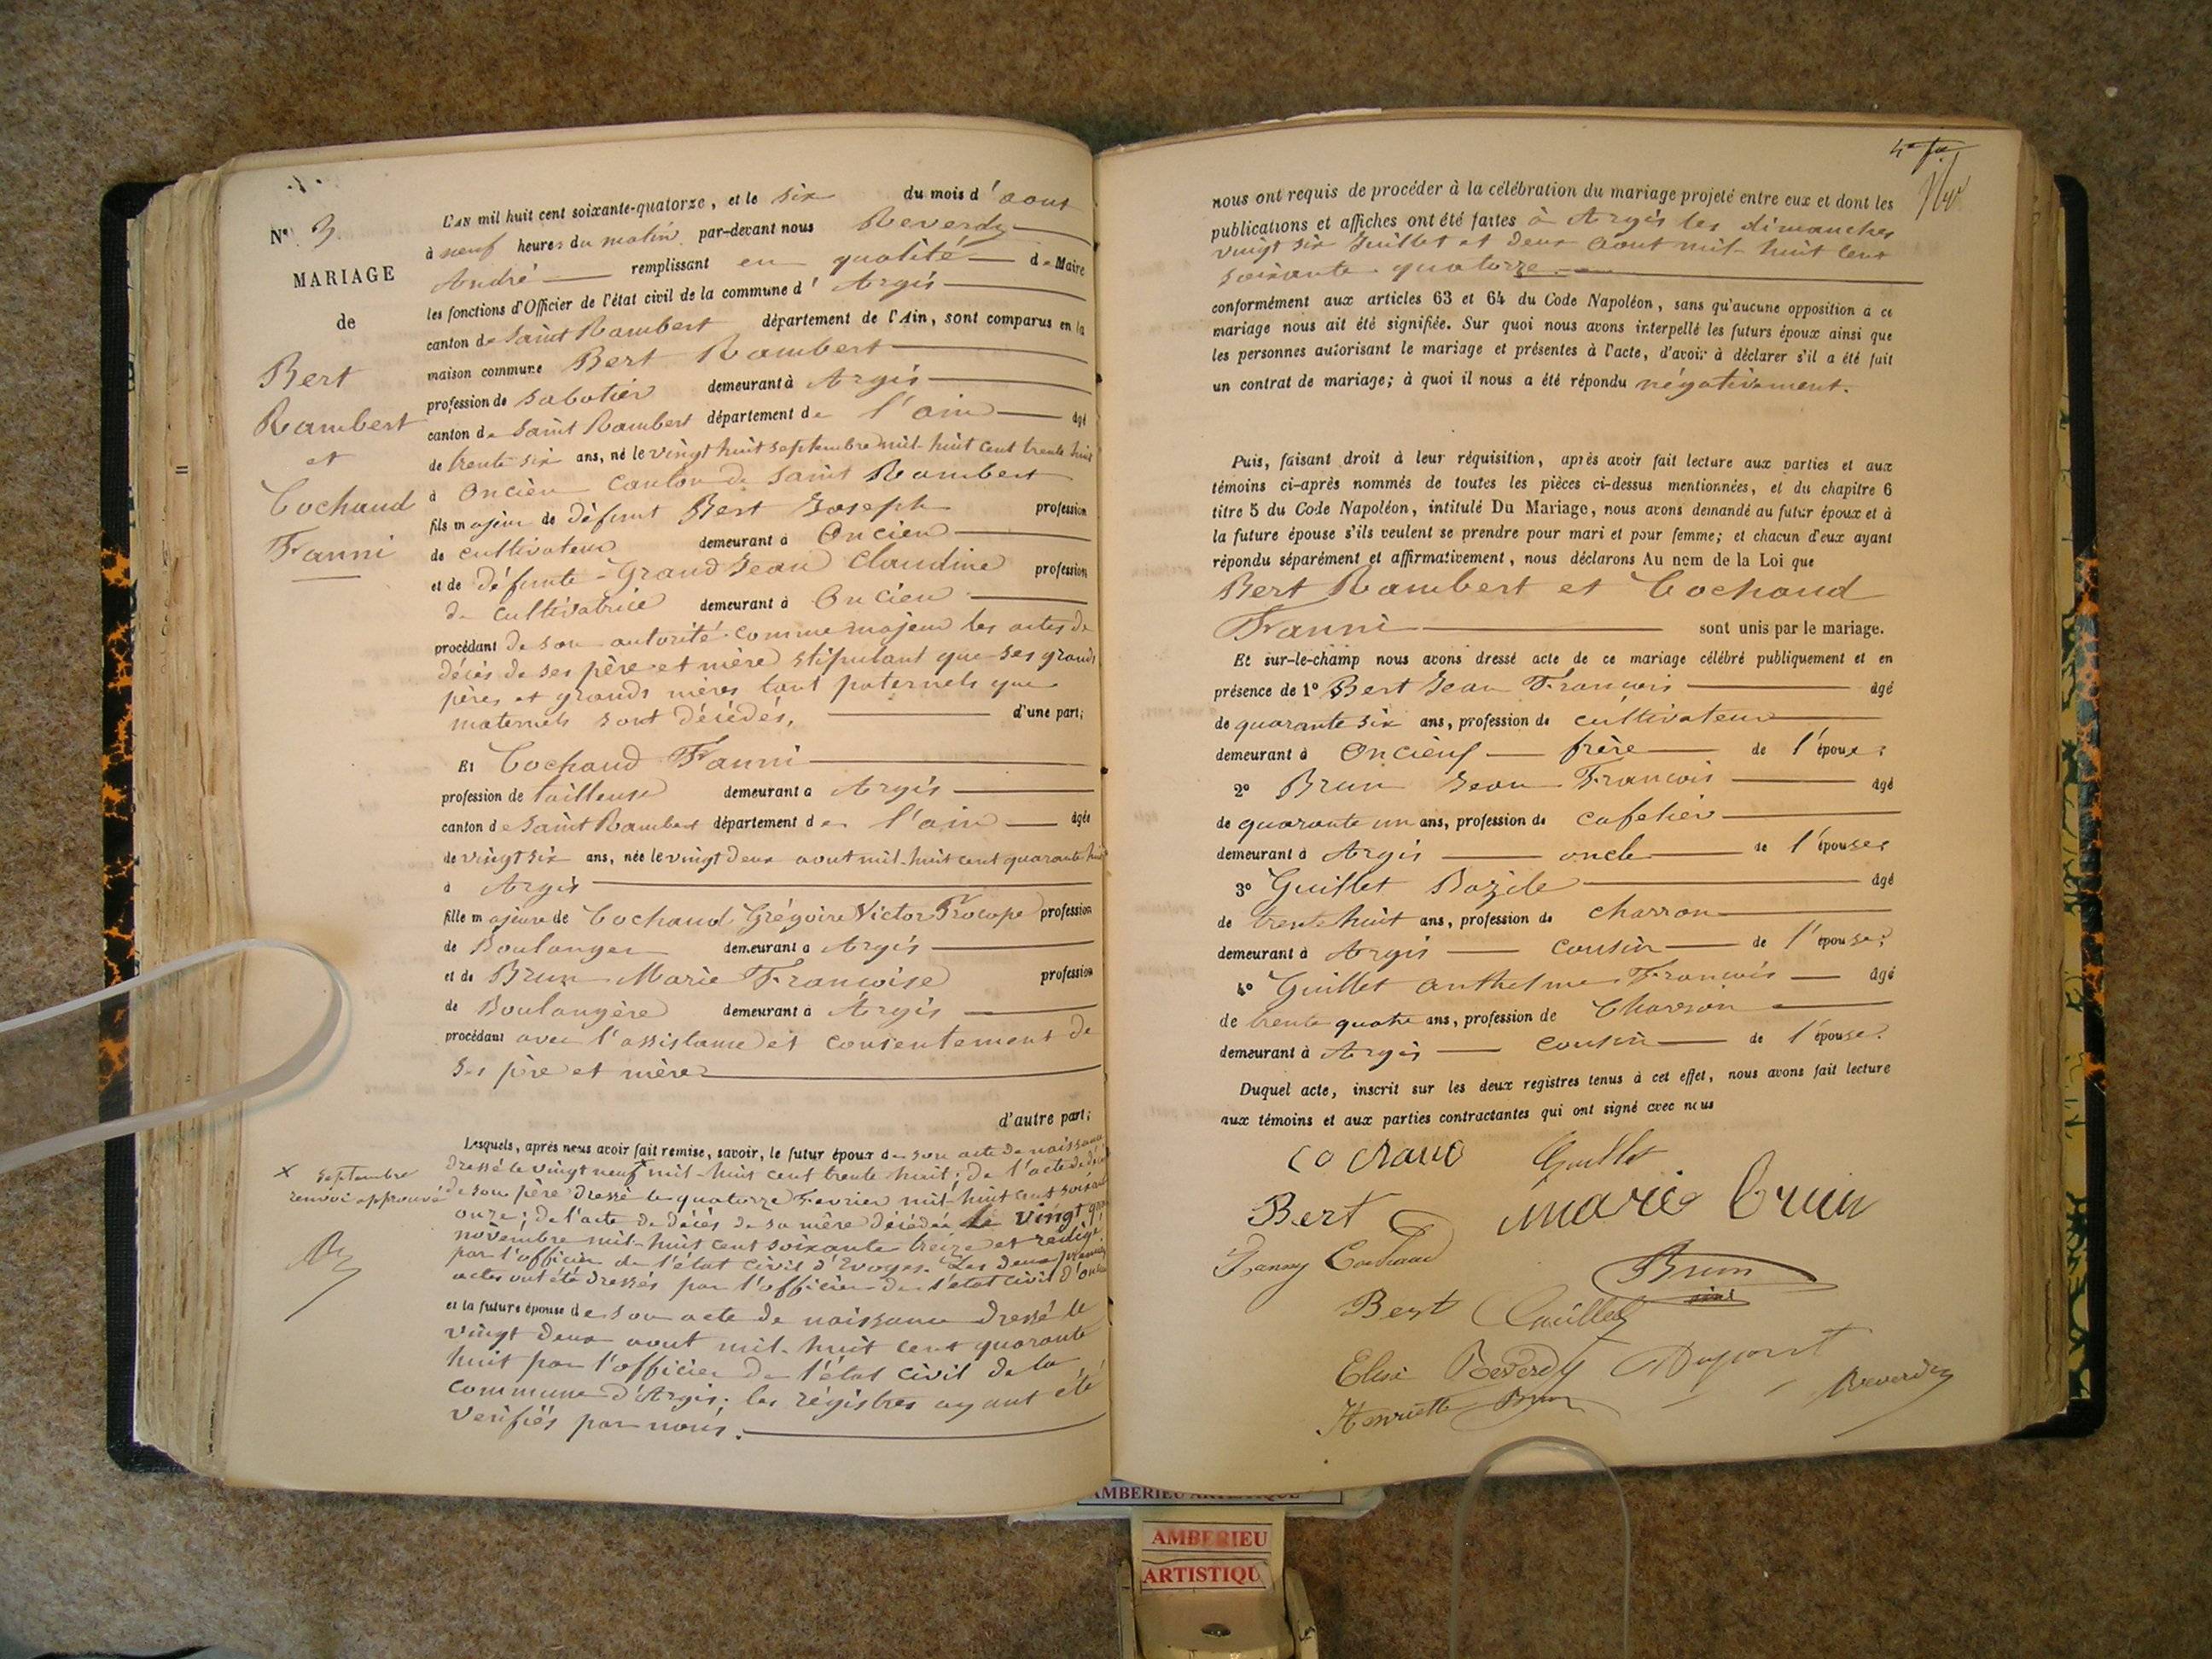 N° 3.
MARIAGE
de
Bert
Rambert
et
Cochaud
Fanni
L'AN mil huit cent soixante-quatorze, et le six du mois d'aout
à neuf heures du matin par-devant nous Reverdy
André remplissant en qualité de Maire
les fonctions d'Officier de l'état civil de la commune d'Argis
canton de Saint Rambert département de l'Ain, sont comparus en la
maison commune Bert Rambert
profession de sabotier demeurant à Argis
canton de Saint Rambert département de l'ain âgé
de trente six ans, né le vingt huit septembre mil-huit cent trente huit
à Oncieu canton de Saint Rambert
fils majeur de défunt Bert Joseph profession
de cultivateur demeurant à Oncieu
et de défunte Grand Jean Claudine profession
de cultivatrice demeurant à Oncieu
procédant de son autorité comme majeur les actes de
décès de ses père et mère stipulant que ses grands
pères et grands mères tant paternels que
maternels sont décédés, d'une part;
Et Cochaud Fanni
profession de tailleuse demeurant à Argis
canton de Saint Rambert département de l'ain âgée
de vingt six ans, née le vingt deux aout mil-huit cent quarante huit
à Argis
fille majeure de Cochaud Grégoire Victor Procope profession
de Boulanger demeurant à Argis
et de Brun Marie Francoise profession
de Boulangère demeurant à Argis
procédant avec l'assistance et consentement de
ses père et mère
d'autre part;
Lesquels, après nous avoir fait remise, savoir, le futur époux de son acte de naissance
dressé le vingt neuf x mil-huit cent trente huit; de l'acte de décès
x septembre
renvoi approuvé
de son père dressé le quatorze Fevrier mil-huit cent soixante
onze; de l'acte de décès de sa mère décédée le vingt
novembre mil-huit cent soixante treize et rédigé
par l'officier de l'état civil d'Evoges. Les deux premiers
actes ont été dressés par l'officier de l'état civil d'Oncieu
et la future épouse de son acte de naissance dressé le
vingt deux aout mil-huit cent quarante
huit par l'officier de l'état civil de la
commune d'Argis; les régistres ayant été
vérifiés par nous.
nous ont requis de procéder à la célébration du mariage projeté entre eux et dont les
publications et affiches ont été faites à Argis les dimanches
vingt six Juillet et deux Aout mil-huit cent
soixante quatorze
conformément aux articles 63 et 64 du Code Napoléon, sans qu'aucune opposition à ce
mariage nous ait été signifiée. Sur quoi nous avons interpellé les futurs époux ainsi que
les personnes autorisant le mariage et présentes à l'acte, d'avoir à déclarer s'il a été fait
un contrat de mariage; à quoi il nous a été répondu négativement.
Puis, faisant droit à leur réquisition, après avoir fait lecture aux parties et aux
témoins ci-après nommés de toutes les pièces ci-dessus mentionnées, et du chapitre 6
titre 5 du Code Napoléon, intitulé Du Mariage, nous avons demandé au futur époux et à
la future épouse s'ils veulent se prendre pour mari et pour femme; et chacun d'eux ayant
répondu séparément et affirmativement, nous déclarons Au nom de la Loi que
Bert Rambert et Cochaud
Fanni sont unis par le mariage.
Et sur-le-champ nous avons dressé acte de ce mariage célébré publiquement et en
présence de 1° Bert Jean Francois âgé
de quarante six ans, profession de cultivateur
demeurant à Oncieu frère de l'époux;
2° Brun Jean Francois âgé
de quarante un ans, profession de cafetier
demeurant à Argis oncle de l'épouse;
3° Guillet Bazile âgé
de trente huit ans, profession de charron
demeurant à Argis cousin de l'épouse;
4° Guillet Anthelme Francois âgé
de trente quatre ans, profession de Charron
demeurant à Argis cousin de l'épouse.
Duquel acte, inscrit sur les deux registres tenus à cet effet, nous avons fait lecture
aux témoins et aux parties contractantes qui ont signé avec nous
Cochaud Guillet
Bert Marie Brun
Fanny Cochaud
Brun
Bert Guillet
Elise Reverdy Dupont
Henriette Brun Reverdy
AMBERIEU ARTISTIQUE
AMBERIEU
ARTISTIQU